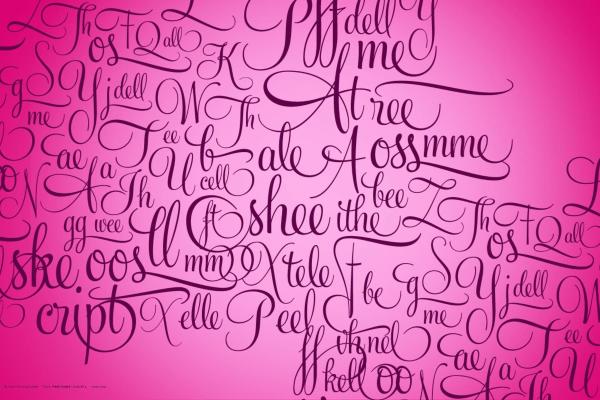 Th
os
Q all
K
Pff dell Y
me
g S Y j dell
me
W Th
At ree
ee
ae
fa
Th
b ale A oss mme
U cell
N
gg wee
ll
ft
shee ithe bee
Z Th
os
Q all
ske oos
mm
X tele
f be g S Y j dell
me
cript X elle Peel
ee
W
nel
ff
koll oo
ae
fa
Th
U